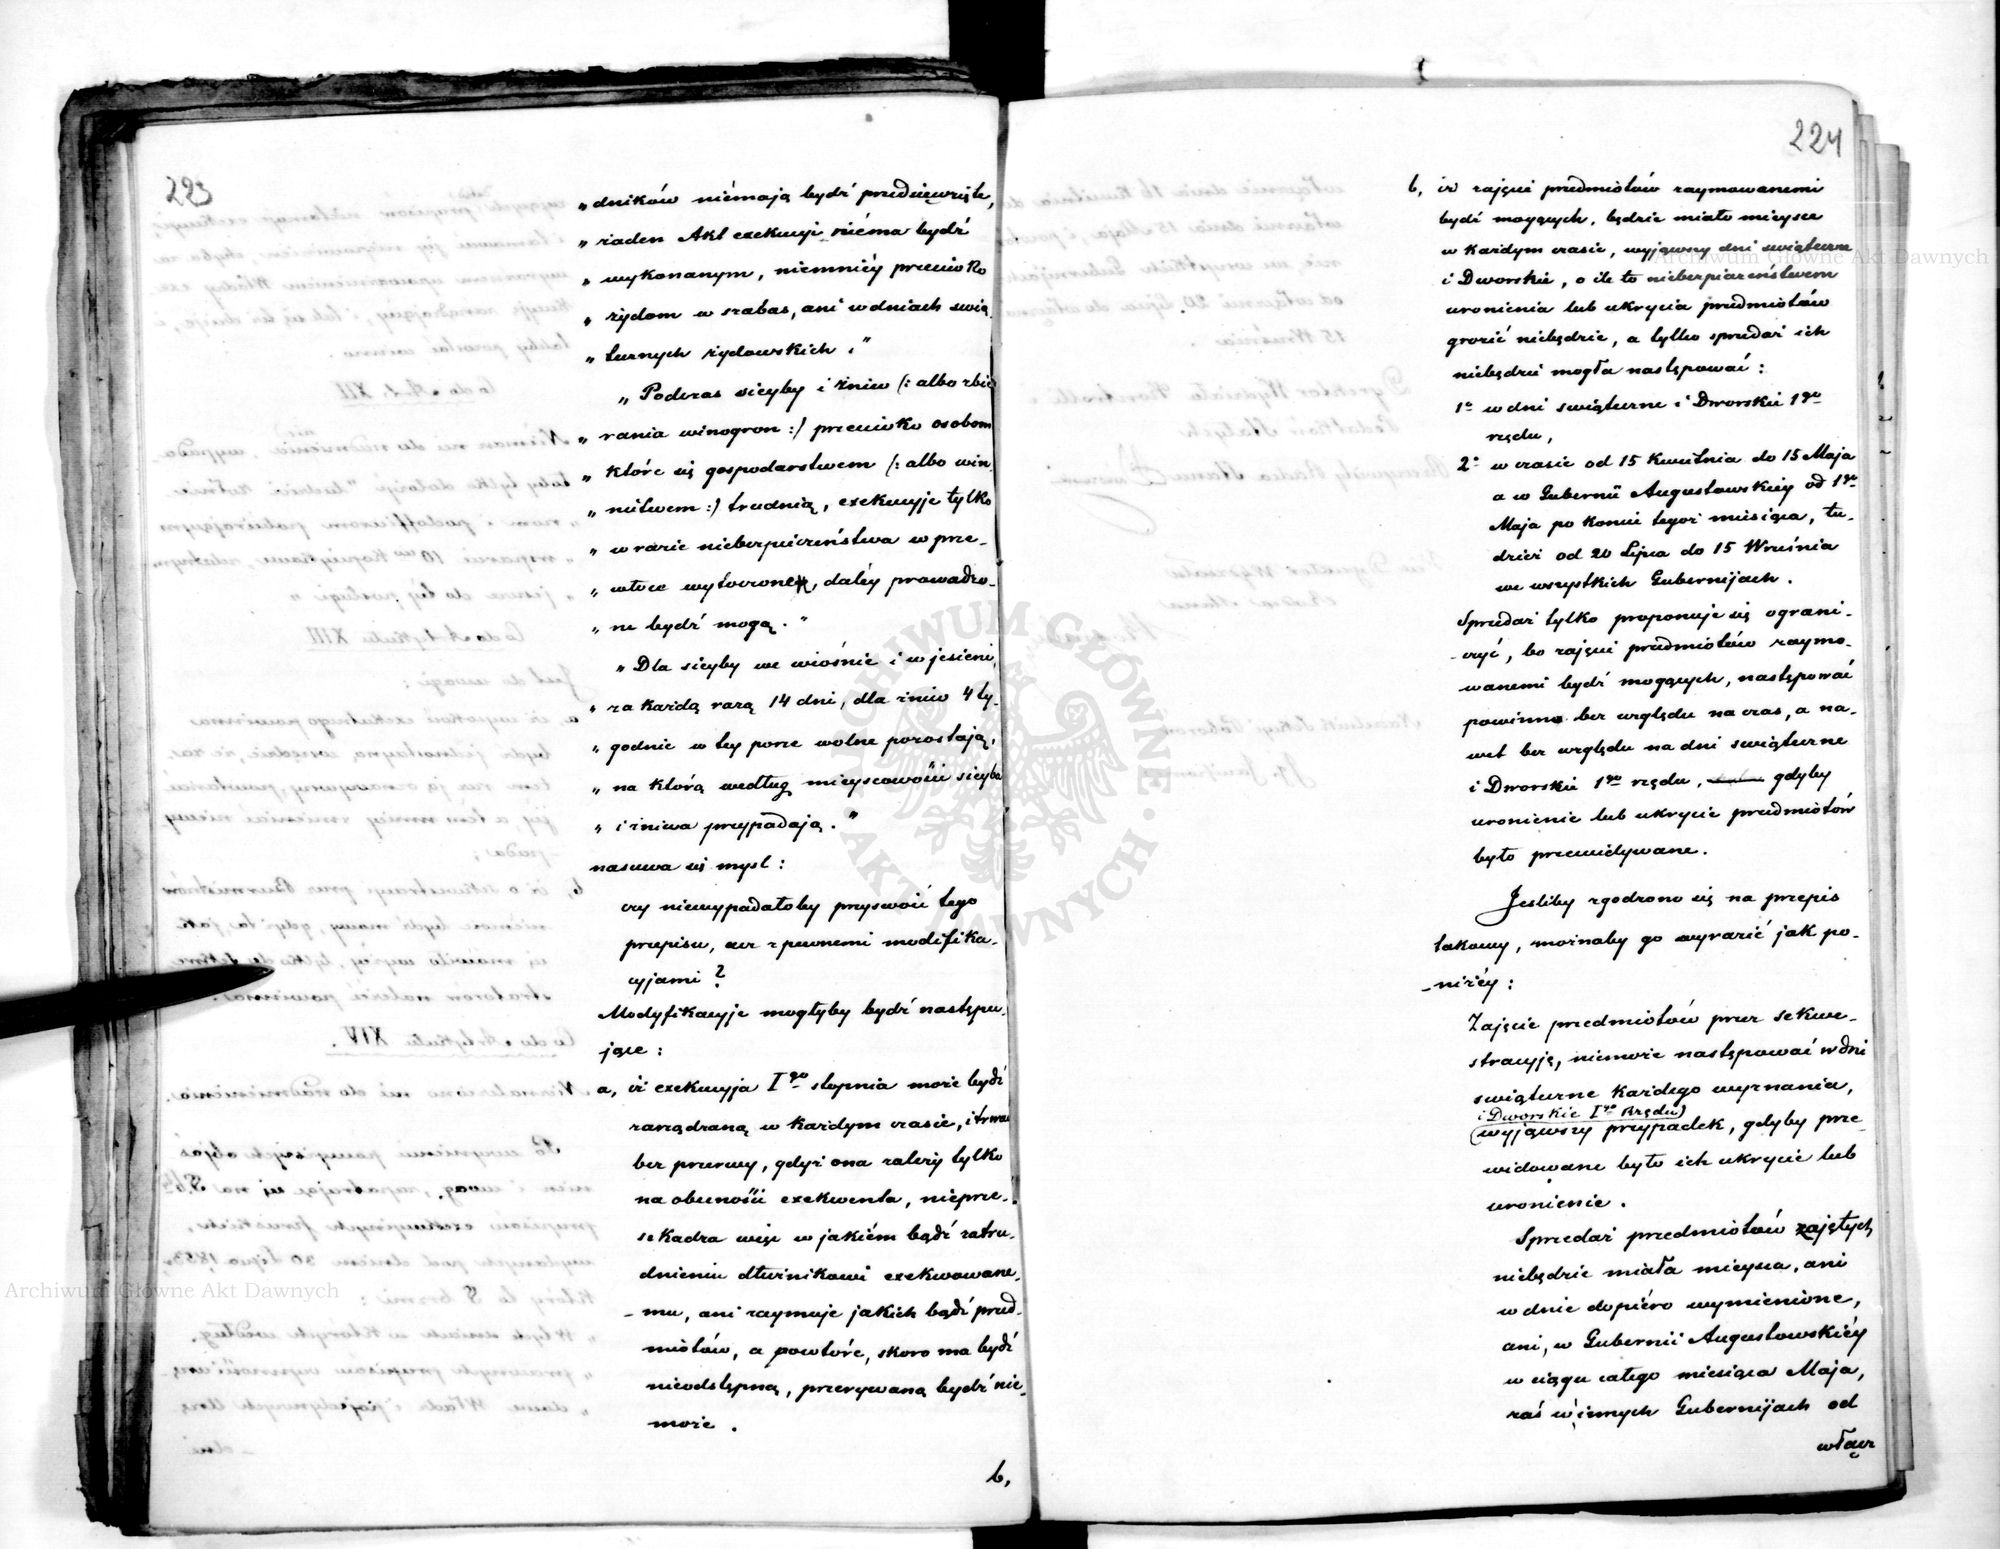 223
„dników niémają bydź przedsięwzięte,
„żaden Akt exekucyi niéma bydź
„wykonanym, niemniéy przeciwko
„żydom w szabas, ani w dniach świą„
„tecznych żydowskich."
„Podczas sieyby i żniw (: albo zbie
„rania winogron :) przeciwko osobom
„które się gospodarstwem (: albo win„
„nictwem :) trudnią, exekucyje tylko
„w razie niebezpieczeństwa w prze„
„włoce wytoczone, daléy prowadzo„
„ne bydź mogą."
„Dla sieyby we wiośnie i w jesieni,
„za każdą razą 14 dni, dla żniw 4 ty„
„godnie w tey porze wolne pozostają,
„na którą według mieyscowości sieyba
„i żniwa przypadają."
nasuwa się mysl:
czy niewypadałoby przyswoić tego
przepisu, acz z pewnemi modifika„
cyjami?
Modyfikacyje mogłyby bydź następu„
jące:
a, iż exekucyja Igo stopnia może bydź
zarządzaną w każdym czasie, i trwać
bez przerwy, gdyż ona zależy tylko
na obecności exekwenta, nieprze„
szkadza więc w jakiém bądź zatru„
dnieniu dłużnikowi exekwowane„
mu, ani zaymuje jakich bądź przed„
miotów, a powtóre, skoro ma bydź
nieodstępną, przerywaną bydź nie„
może.
b,
224
b, iż zajęcie przedmiotów zaymowanemi
bydź mogących, będzie miało mieysce
w każdym czasie, wyjąwszy dni świąteczne
i Dworskie, o ile to niebezpieczeństwem
uronienia lub ukrycia przedmiotów
grozić niebędzie, a tylko sprzedaż ich
niebędzie mogła następować:
1o w dni świąteczne i Dworskie 1go
rzędu,
2o w czasie od 15 Kwietnia do 15 Maja
a w Gubernii Augustowskiéy od 1go
Maja po koniec tegoż miesiąca, tu„
dzież od 20 Lipca do 15 Września
we wszystkich Gubernijach.
Sprzedaż tylko proponuje się ograni„
czyć, bo zajęcie przedmiotów zaymo„
wanemi bydź mogących, następować
powinno bez względu na czas, a na„
wet bez względu na dni świąteczne
i Dworskie 1go rzędu, gdyby
uronienie lub ukrycie przedmiotów
było przewidywane.
Jeśliby zgodzono się na przepis
takowy, możnaby go wyrazić jak po„
niżéy:
Zajęcie przedmiotów przez sekwe„
stracyję, niemoże następować w dni
świąteczne każdego wyznania,
i Dworskie Igo Rzędu
wyjąwszy przypadek, gdyby prze„
widowane było ich ukrycie lub
uronienie.
Sprzedaż przedmiotów zajętych
niebędzie miała mieysca, ani
w dnie dopiéro wymienione,
ani, w Gubernii Augustowskiéy
w ciągu całego miesiąca Maja,
zaś w innych Gubernijach od
włącz
Archiwum Główne Akt Dawnych
Archiwum Główne Akt Dawnych
ARCHIWUM GŁÓWNE AKT DAWNYCH